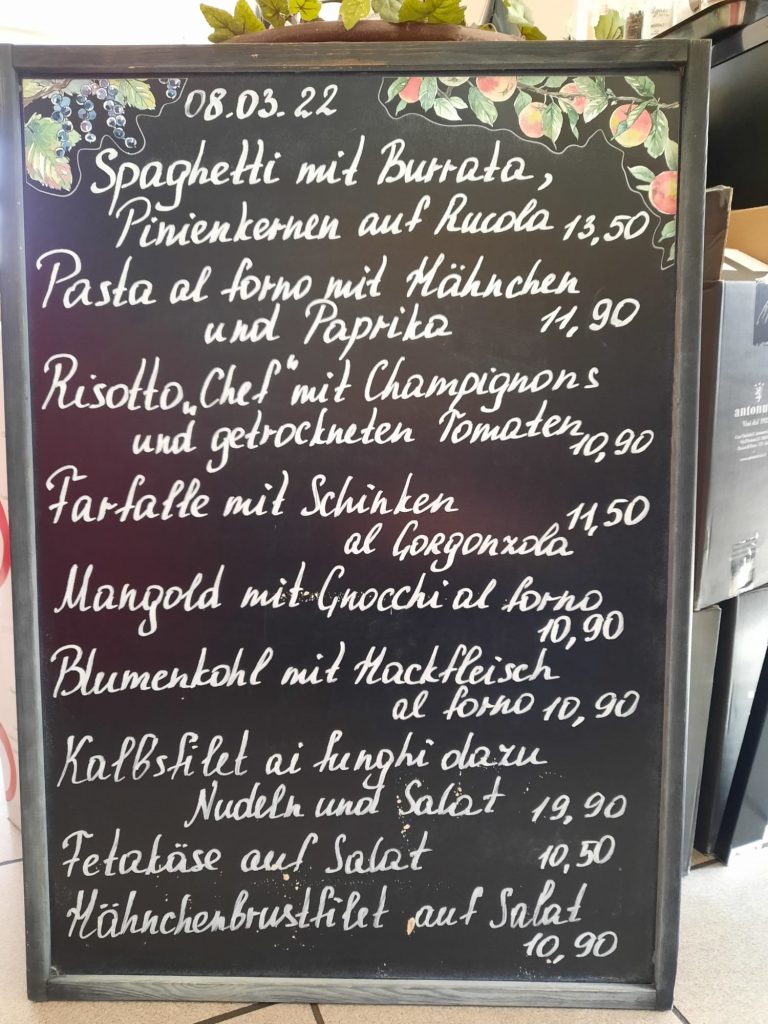 08.03.22
Spaghetti mit Burrata,
Pinienkernen auf Rucola 13,50
Pasta al forno mit Hähnchen
und Paprika 11,90
Risotto „Chef“ mit Champignons
und getrockneten Tomaten
10,90
Farfalle mit Schinken 11,50
al Gorgonzola
Mangold mit Gnocchi al forno
10,90
Blumenkohl mit Hackfleisch
al forno 10,90
Kalbsfilet ai funghi dazu
Nudeln und Salat 19,90
Fetakäse auf Salat 10,50
Hähnchenbrustfilet auf Salat
10,90